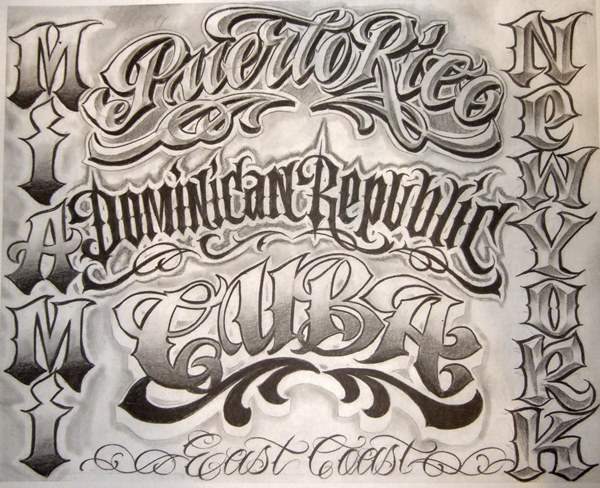 MiAMi
Puerto Rico
Dominican Republic
CUBA
East Coast
NeW YORK